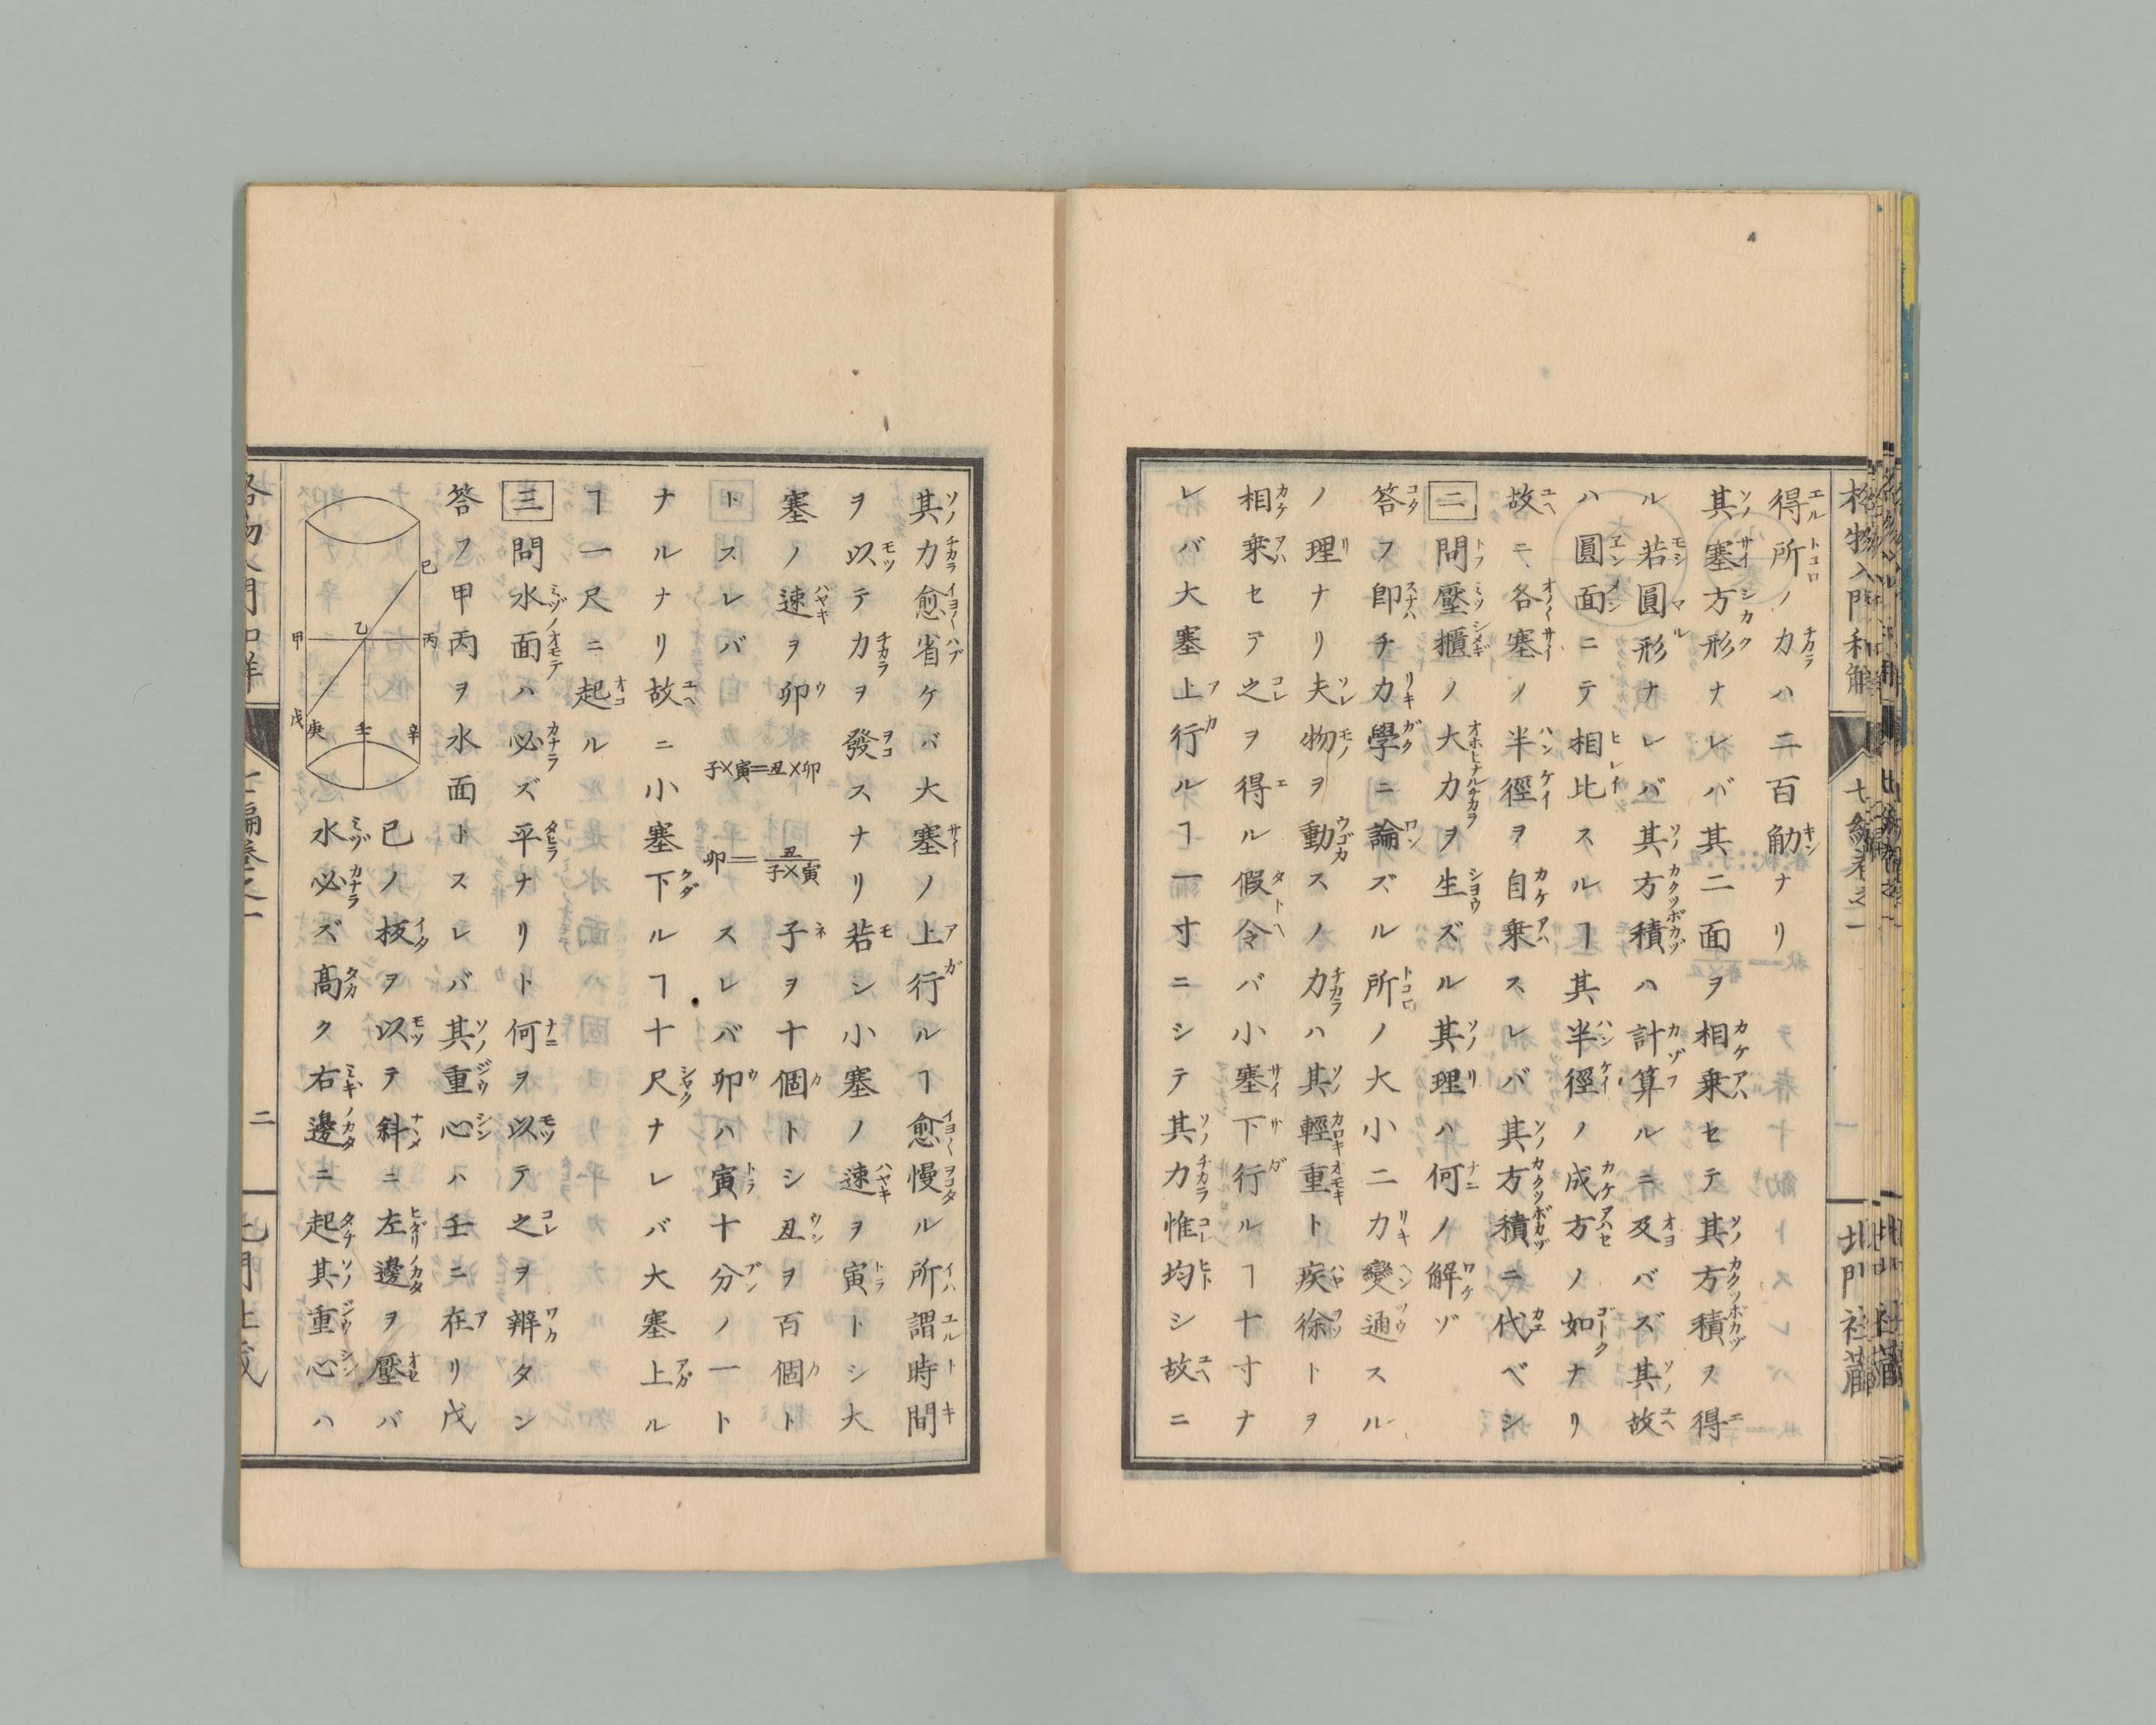 格物入門和解
七編卷之一
北門社藏
得所ノ力ハ二百觔ナリ
其塞方形ナレバ其二面ヲ相乗セテ其方積ヲ得
ル若圓形ナレバ其方積ハ計算ルニ及バズ其故
ハ圓面ニテ相比スルヿ其半徑ノ成方ノ如ナリ
故ニ各塞ノ半徑ヲ自乗スレバ其方積ニ代ベシ
二 問壓櫃ノ大力ヲ生ズル其理ハ何ノ解ゾ
答フ即チ力學ニ論ズル所ノ大小二力變通スル
ノ理ナリ夫物ヲ動スノ力ハ其輕重ト疾徐トヲ
相乗セテ之ヲ得ル假令バ小塞下行ルヿ十寸ナ
レバ大塞上行ルヿ一寸ニシテ其力惟均シ故ニ
其力愈省ケバ大塞ノ上行ルヿ愈慢ル所謂時間
ヲ以テ力ヲ發スナリ若シ小塞ノ速ヲ寅トシ大
塞ノ速ヲ卯 子×寅=丑×卯 子ヲ十個トシ丑ヲ百個ト
トスレバ 卯=丑/子×寅 スレバ卯ハ寅十分ノ一ト
ナルナリ故ニ小塞下ルヿ十尺ナレバ大塞上ル
ヿ一尺ニ起ル
三 問水面ハ必ズ平ナリト何ヲ以テ之ヲ辧タン
答フ甲丙ヲ水面トスレバ其重心ハ壬ニ在リ戊
己ノ板ヲ以テ斜ニ左邊ヲ壓バ
水必ズ高ク右邊ニ起其重心ハ
己
甲
乙
丙
戊
庚
壬
辛
二